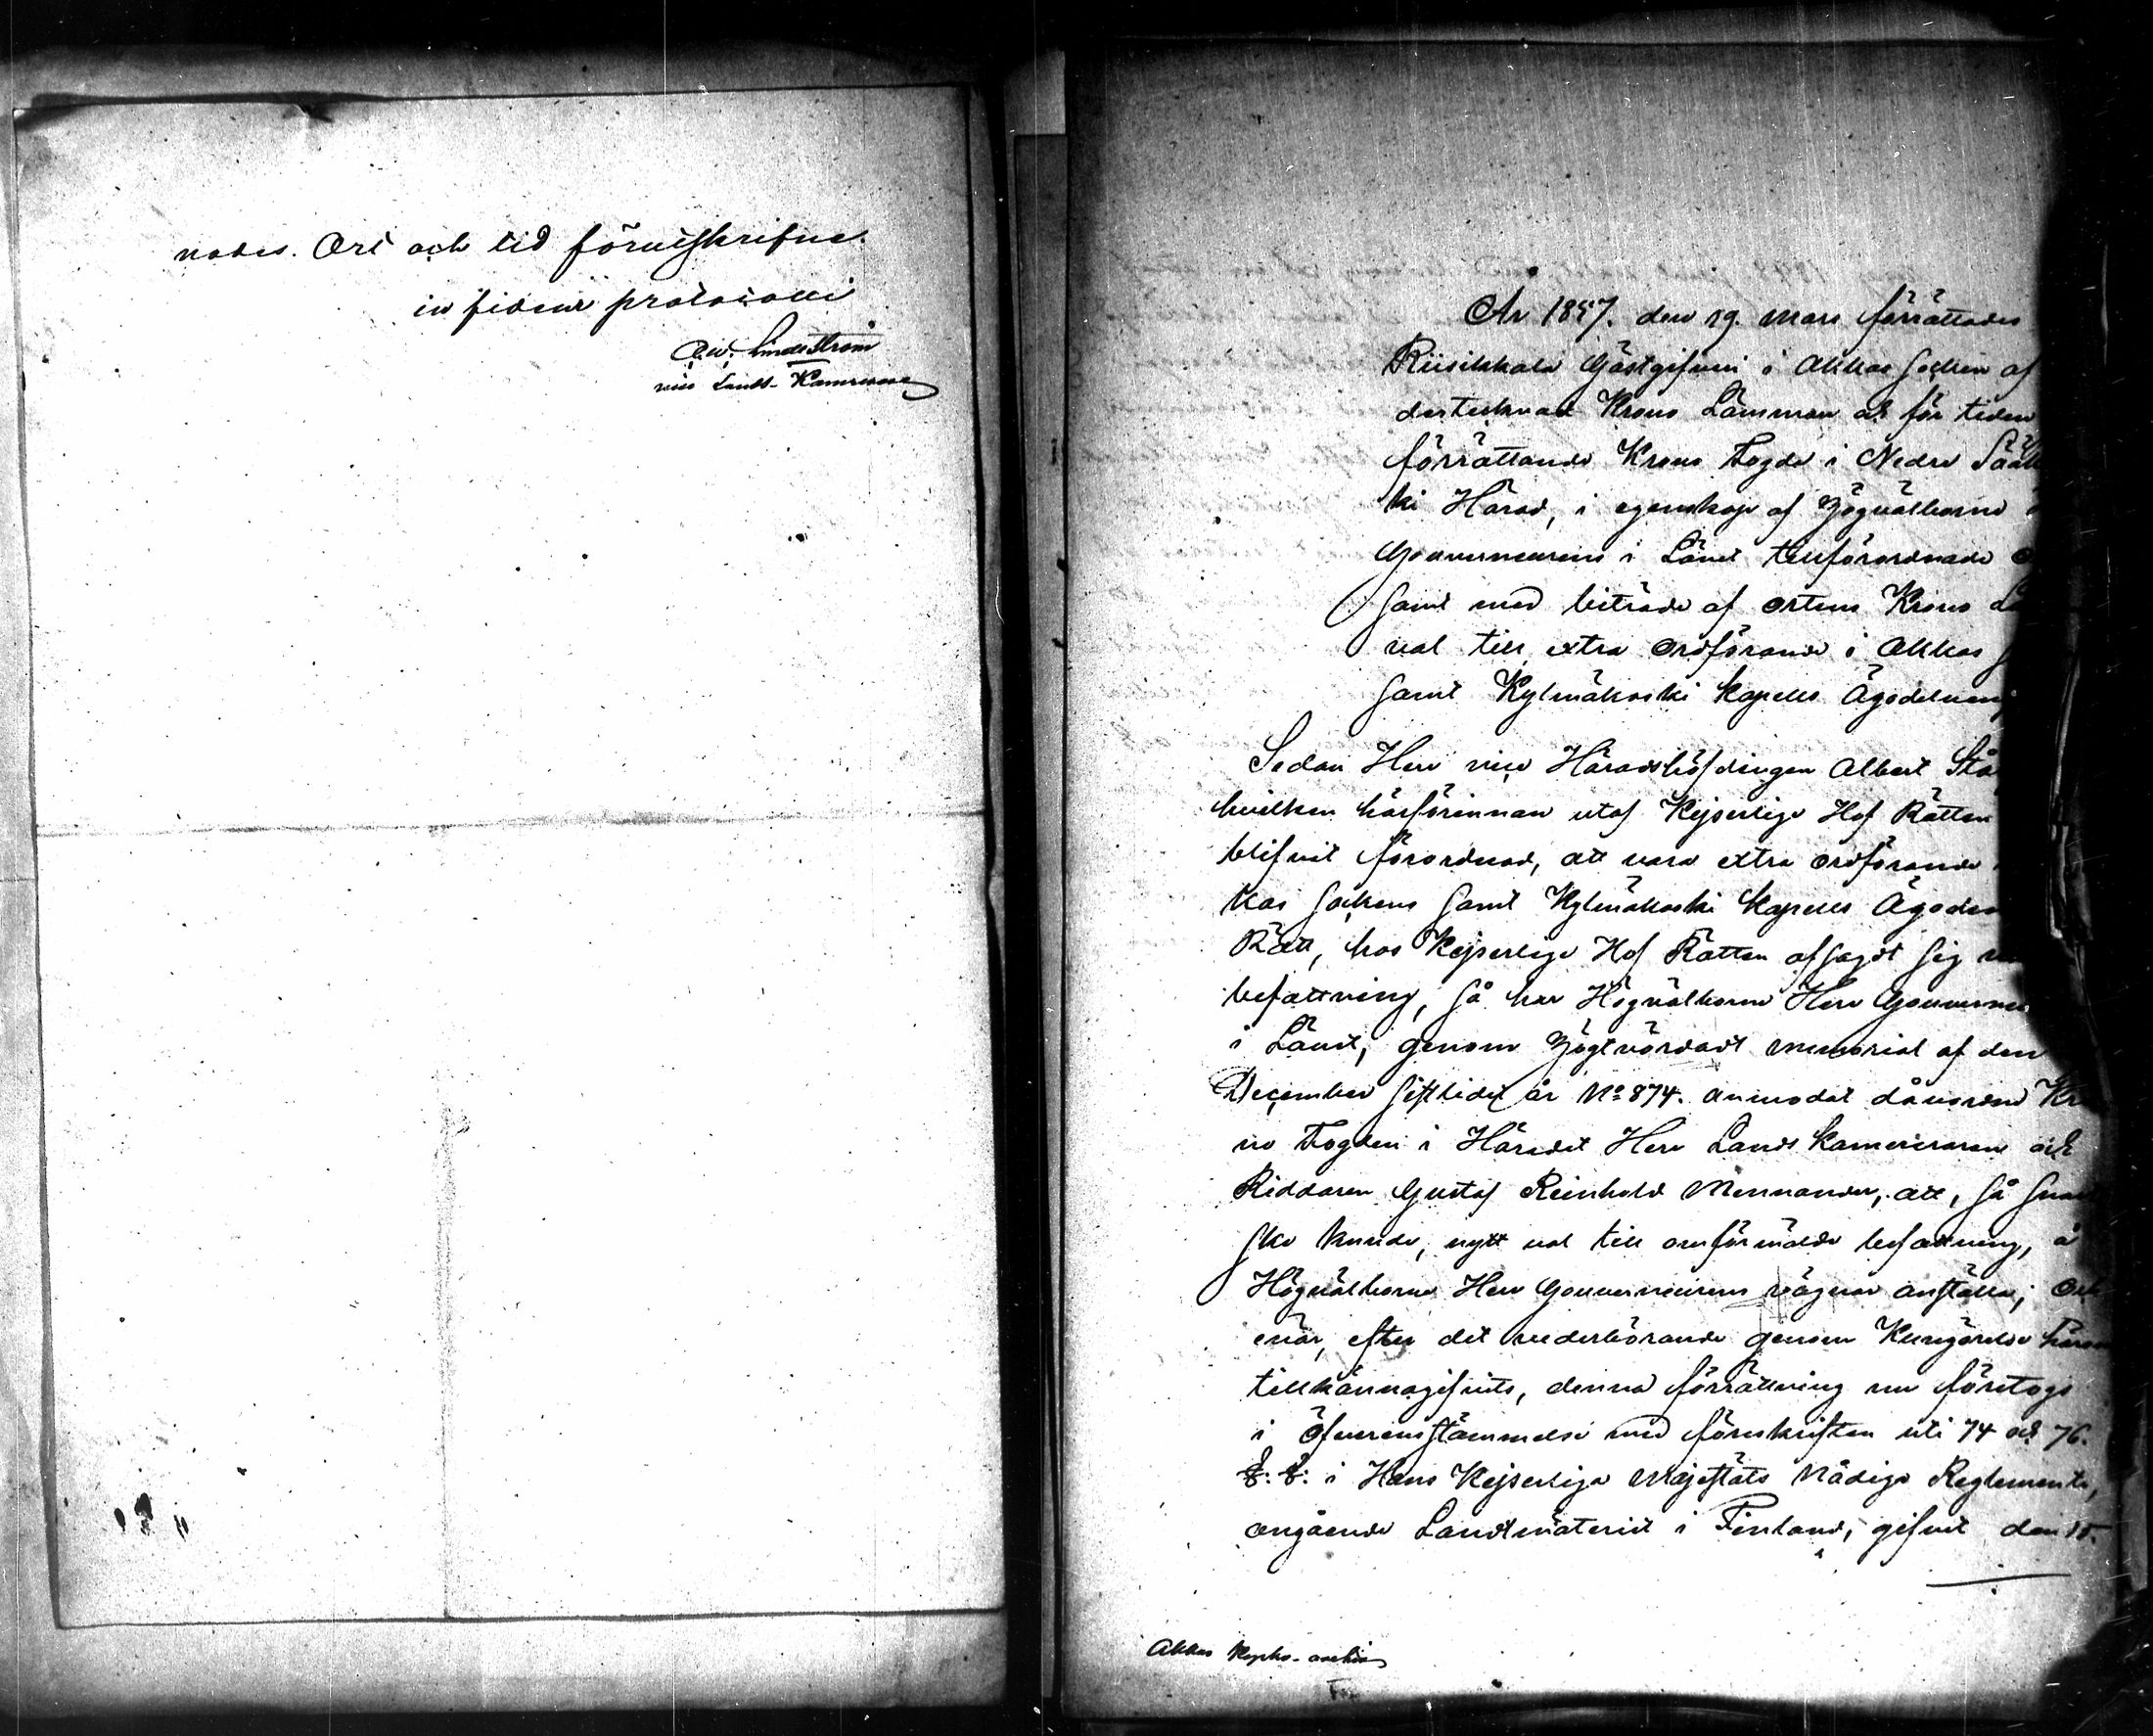 nades. Ort och tid förutskrifne.
in fidem protocolli
Lindström
vice Lands-Kamrerare
År 1857. den 19. Mars förrättades
Riisikkala Gästgifveri i Akkas Socken af
dertecknad Krono Länsman och för tiden
förrättande Krono Fogde i Nedre Sääk
ki Härad, i egenskap af Högvälborne
Gouverneurens i Länet tillförordnade
samt med biträde af ortens Krono Lä
val till extra Ordförande i Akkas S
samt Kylmäkoski Kapells Ägodelning
Sedan Herr vice Häradshöfdingen Albert Stå
hvilken härförinnan utaf Kejserlige Hof Rätten
blifvit förordnad, att vara extra ordförande
kas Sockens samt Kylmäkoski Kapells Ägodel
Rätt, hos Kejserlige Hof Rätten afsagdt sig
befattning, så har Högvälborne Herr Gouverne
i Länet, genom Högtvördadt Memorial af den
December sistlidet år No 874. anmodat dåvarande Kro
no Fogden i Häradet Herr Lands Kamereraren och
Riddaren Gustaf Reinhold Mennander, att, så snart
ske kunde, nytt val till omförmälde befattning, å
Högvälborne Herr Gouverneurens vägnar anställa; Och
enär, efter det vederbörande genom Kungörelse härom
tillkännagifvits, denna förrättning nu företogs
i öfverensstämmelse med föreskriften uti 74 och 76.
§. §. i Hans Kejserliga Majestäts Nådiga Reglemente,
angående Landtmäteriet i Finland, gifvet den 15.
Akkas